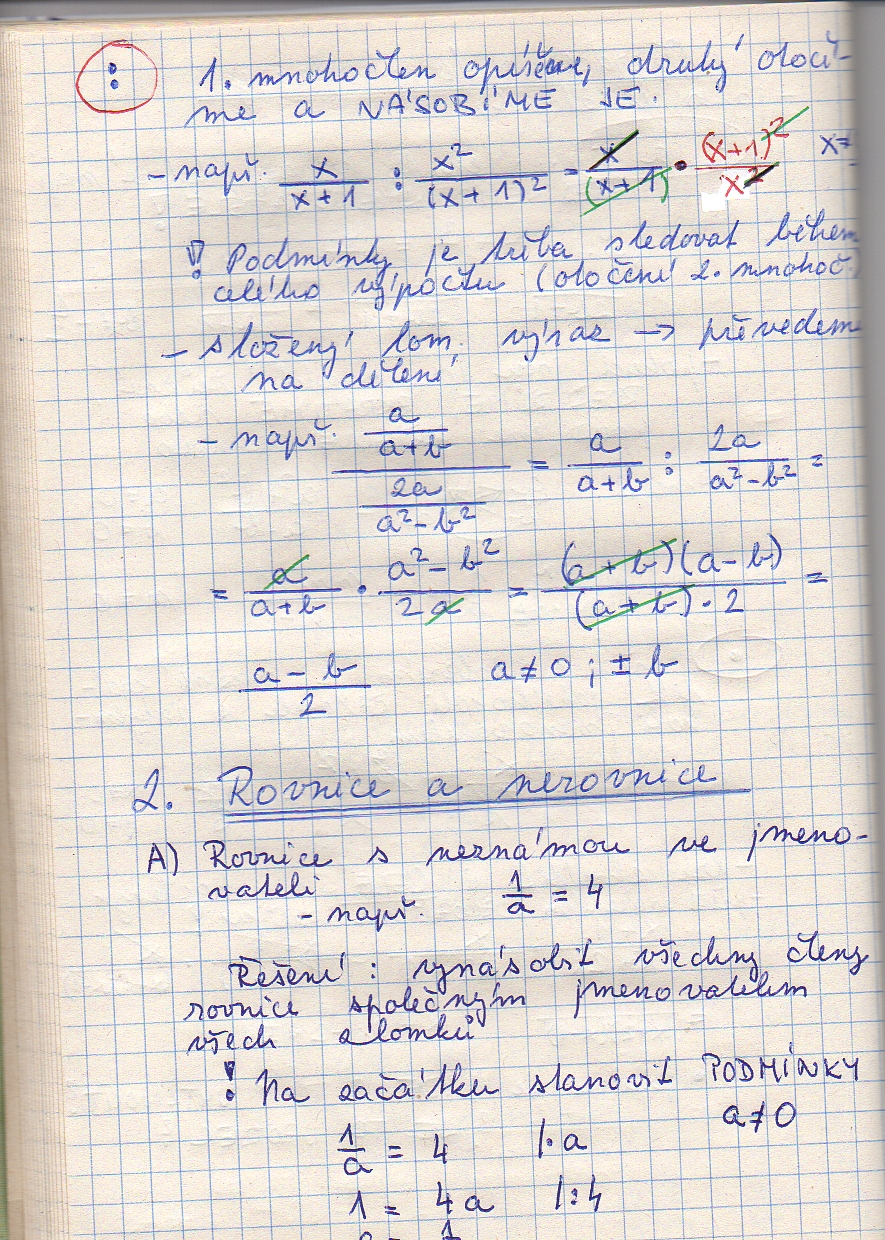 :
1. mnohočlen opíšeme, druhý otočí-
me a NÁSOBÍME JE.
- např. x/(x+1) : x²/(x+1)² = x/(x+1) • (x+1)²/x² x≠
! Podmínky je třeba sledovat během
celého výpočtu (otočení 2. mnohoč.)
- složený lom. výraz → převedem
na dělení
- např. (a/(a+b))/(2a/(a²-b²)) = a/(a+b) : 2a/(a²-b²) =
= a/(a+b) • (a²-b²)/(2a) = (a+b)(a-b)/((a+b)•2) =
(a-b)/2 a≠0; ±b
2. Rovnice a nerovnice
A) Rovnice s neznámou ve jmeno-
vateli
- např. 1/a = 4
Řešení: vynásobit všechny členy
rovnice společným jmenovatelem
všech zlomků
! Na začátku stanovit PODMÍNKY
a≠0
1/a = 4 |•a
1 = 4a |:4